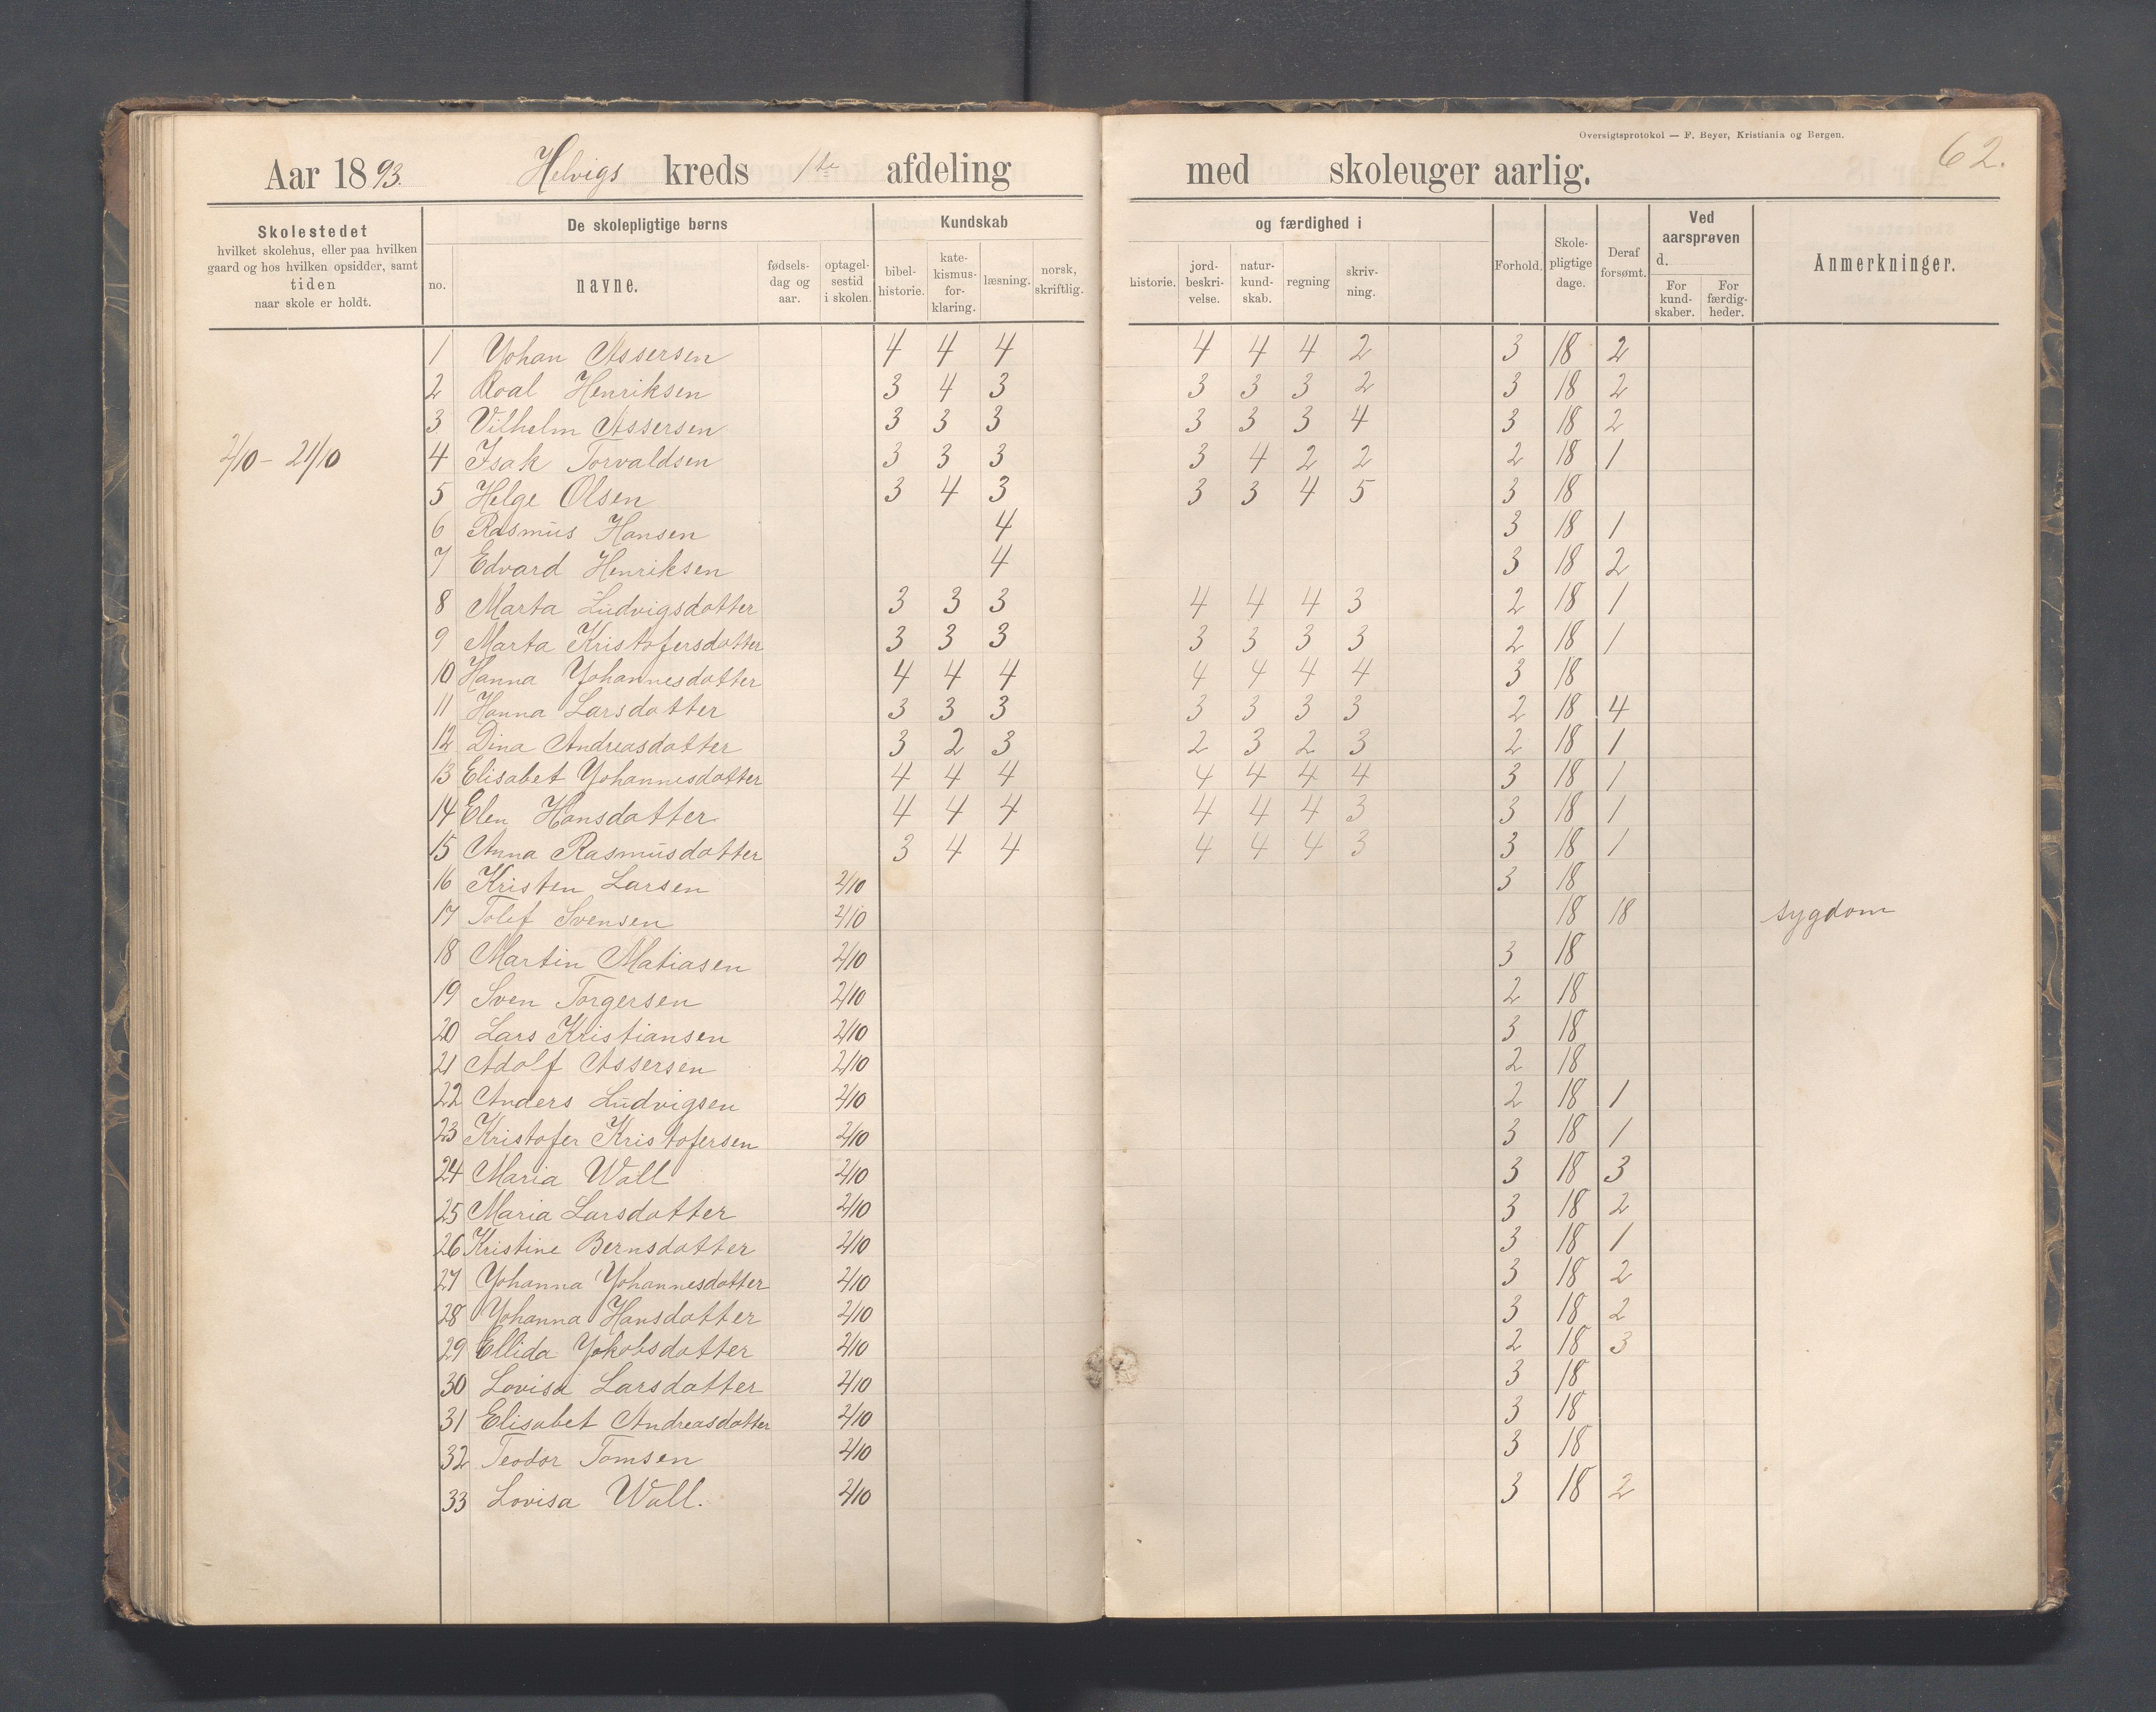 Oversigtsprotokol — F. Beyer, Kristiania og Bergen.
62.
Aar 1893. Helvigs kreds 1ste afdeling med skoleuger aarlig.
Skolestedet hvilket skolehus, eller paa hvilken gaard og hos hvilken opsidder, samt tiden naar skole er holdt.
De skolepligtige børns
no. navne. fødsels-dag og aar. optagel-sestid i skolen.
Kundskab og færdighed i
bibel-historie. kate-kismus-for-klaring. læsning. norsk, skriftlig. historie. jord-beskri-velse. natur-kund-skab. regning skriv-ning.
Forhold. Skole-pligtige dage. Deraf forsømt.
Ved aarsprøven d.
For kund-skaber. For færdig-heder.
Anmerkninger.
2/10 - 21/10
1 Yohan Assersen 4 4 4 4 4 4 2 3 18 2
2 Roal Henriksen 3 4 3 3 3 3 2 3 18 2
3 Vilhelm Assersen 3 3 3 3 3 3 4 3 18 2
4 Isak Torvaldsen 3 3 3 3 4 2 2 2 18 1
5 Helge Olsen 3 4 3 3 3 4 5 3 18
6 Rasmus Hansen 4 3 18 1
7 Edvard Henriksen 4 3 18 2
8 Marta Ludvigsdatter 3 3 3 4 4 4 3 2 18 1
9 Marta Kristofersdatter 3 3 3 3 3 3 3 2 18 1
10 Hanna Yohannesdatter 4 4 4 4 4 4 4 3 18
11 Hanna Larsdatter 3 3 3 3 3 3 3 2 18 4
12 Dina Andreasdatter 3 2 3 2 3 2 3 2 18 1
13 Elisabet Yohannesdatter 4 4 4 4 4 4 4 3 18 1
14 Elen Hansdatter 4 4 4 4 4 4 3 3 18 1
15 Anna Rasmusdatter 3 4 4 4 4 4 3 3 18 1
16 Kristen Larsen 2/10 3 18
17 Tolef Svensen 2/10 18 18 sygdom
18 Martin Matiasen 2/10 3 18
19 Sven Torgersen 2/10 2 18
20 Lars Kristiansen 2/10 3 18
21 Adolf Assersen 2/10 2 18
22 Anders Ludvigsen 2/10 2 18 1
23 Kristofer Kristofersen 2/10 3 18 1
24 Maria Wall 2/10 3 18 3
25 Maria Larsdatter 2/10 3 18 2
26 Kristine Bernsdatter 2/10 3 18 1
27 Yohanna Yohannesdatter 2/10 3 18 2
28 Yohanna Hansdatter 2/10 3 18 2
29 Ellida Yakobsdatter 2/10 2 18 3
30 Lovisa Larsdatter 2/10 3 18
31 Elisabet Andreasdatter 2/10 3 18
32 Teodor Tomsen 2/10 3 18
33 Lovisa Wall. 2/10 3 18 2